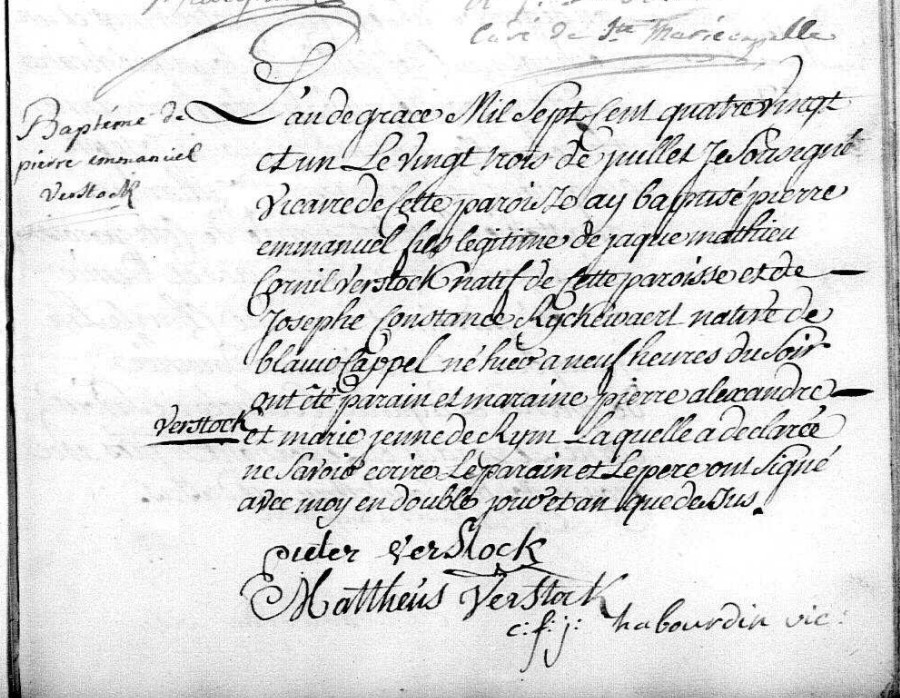 Curé de Ste Mariecappelle
Baptême de
pierre emmanuel
Verstock
L'an de grace Mil Sept Cent quatre vingt
et un Le vingt trois de juillet Je Soussigné
Vicaire de Cette paroisse ay baptisé pierre
emmanuel fils legitime de jaque mathieu
Cornil Verstock natif de Cette paroisse et de
Josephe Constance Ryckewaert native de
blawo Cappel né hier a neuf heures du Soir
ont été parain et maraine pierre alexandre
Verstock
et marie jenne de Rym Laquelle a declarée
ne Savoir ecrire Le parain et Le pere ont Signé
avec moy en double jour et an que dessus.
pieter VerStock
Mattheus VerStock
c: f: j: habourdin vic: